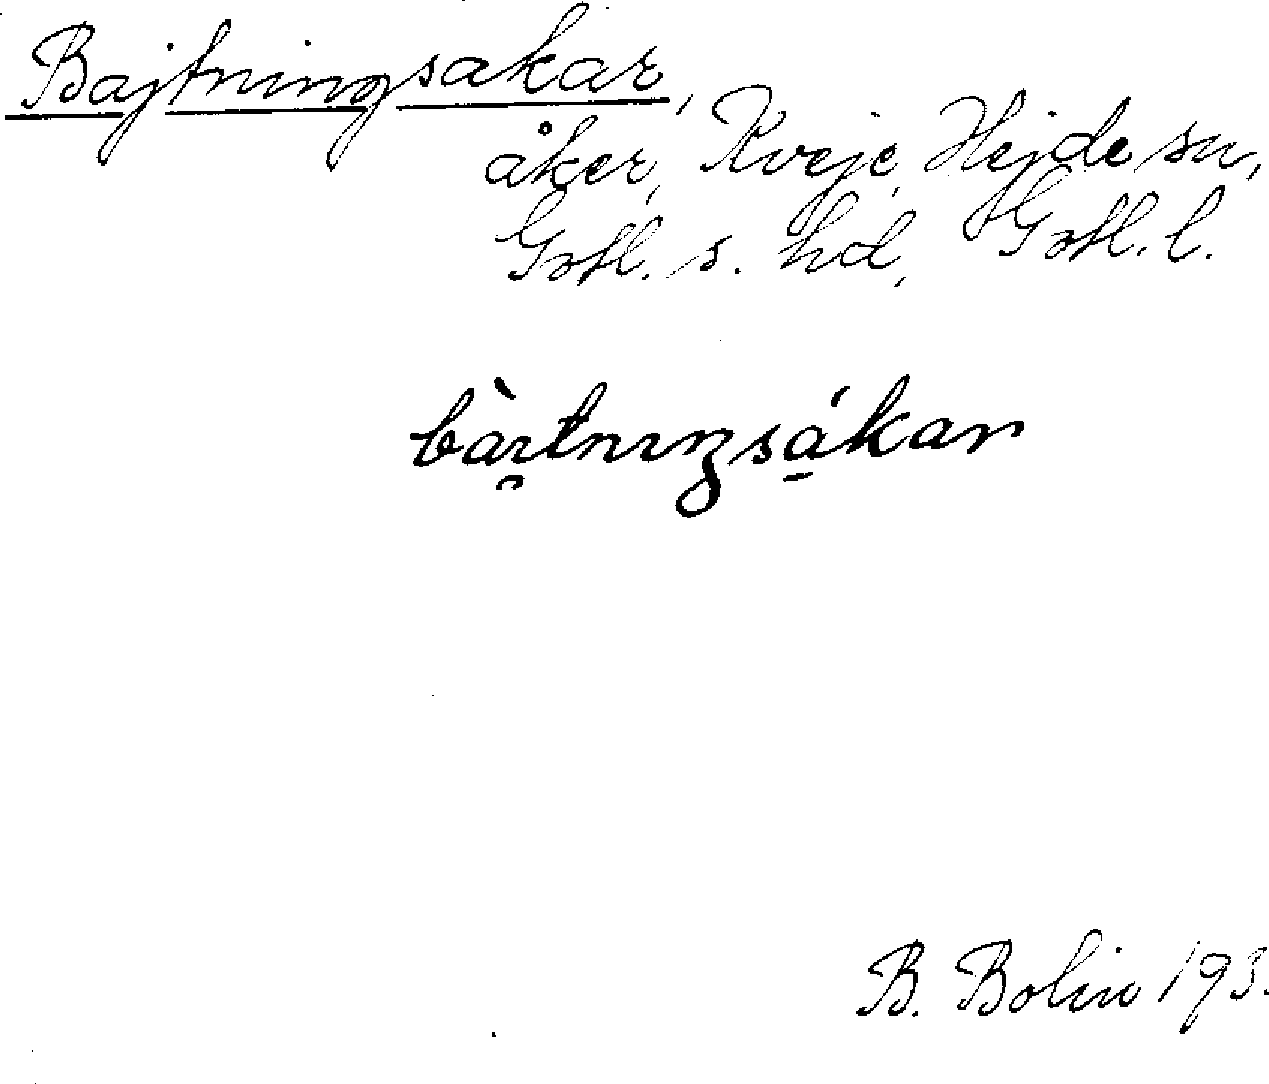 Bajtningsakar,
åker, Kveje, Hejde sn,
Gotl. s. hd, Gotl. l.
bàɪtnɪŋsákar
B. Bolin 193.